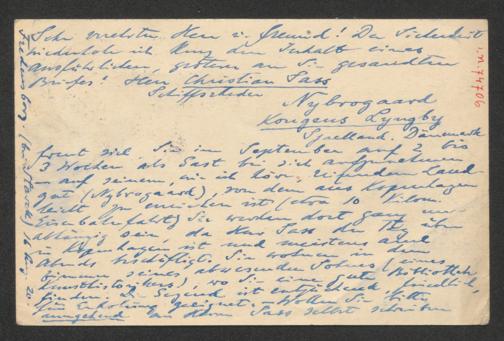 Sehr verehrter Herr u. Freund! Der Sicherheit
wiederhole ich kurz den Inhalt eines
ausführlichen, gestern an Sie gesandten
Briefes! Herr Christian Sass
Schiffsreeder
Nybrogaard
Kongens Lyngby
Sjælland. Dänemark
freut sich, Sie im September auf 2 bis
3 Wochen als Gast bei sich aufzunehmen
– auf seinem, wie ich höre, Land
gut (Nybrogaard), von dem aus Kopenhagen
leicht zu erreichen ist (etwa 10 Kilom.
Eisenbahnfahrt) Sie werden dort ganz un
abhängig sein, da Herr Sass den Tag über
in Kopenhagen ist und meistens auch
abends beschäftigt. Sie wohnen in den
Zimmern seines abwesenden Sohnes (eines
Kunsthistorikers), wo Sie eine gute Bibliothek
finden. Die Gegend ist entzückend, friedlich,
für Erholung geeignet. – Wollen Sie bitte
umgehend an Herrn Sass selbst schreiben
i.N. 74706